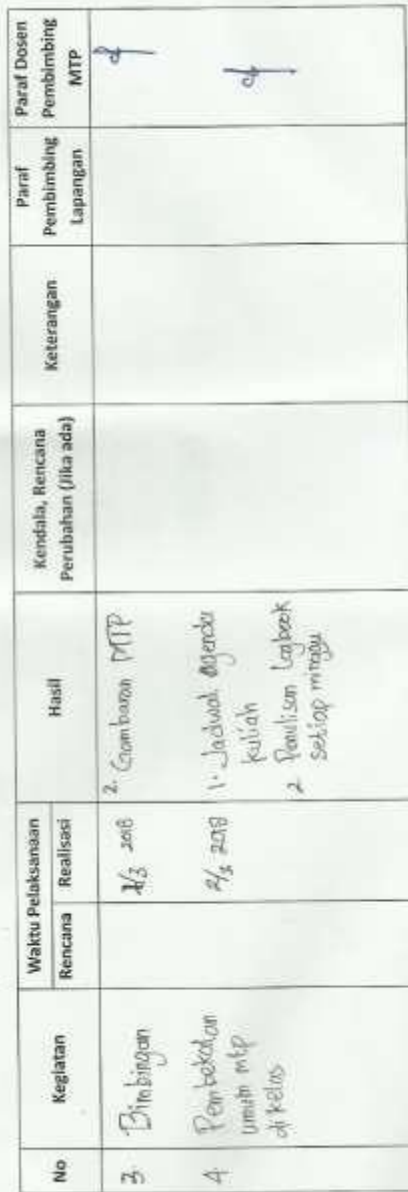 No
Kegiatan
Waktu Pelaksanaan
Rencana
Realisasi
Hasil
Kendala, Rencana
Perubahan (Jika ada)
Keterangan
Paraf
Pembimbing
Lapangan
Paraf Dosen
Pembimbing
MTP
3
Bimbingan
/3 2018
2. Gambaran MTP
4
Pembekalan
umum mtp
di kelas
2/3 2018
1. Jadwal agenda
kuliah
2 Penulisan Logbook
setiap minggu